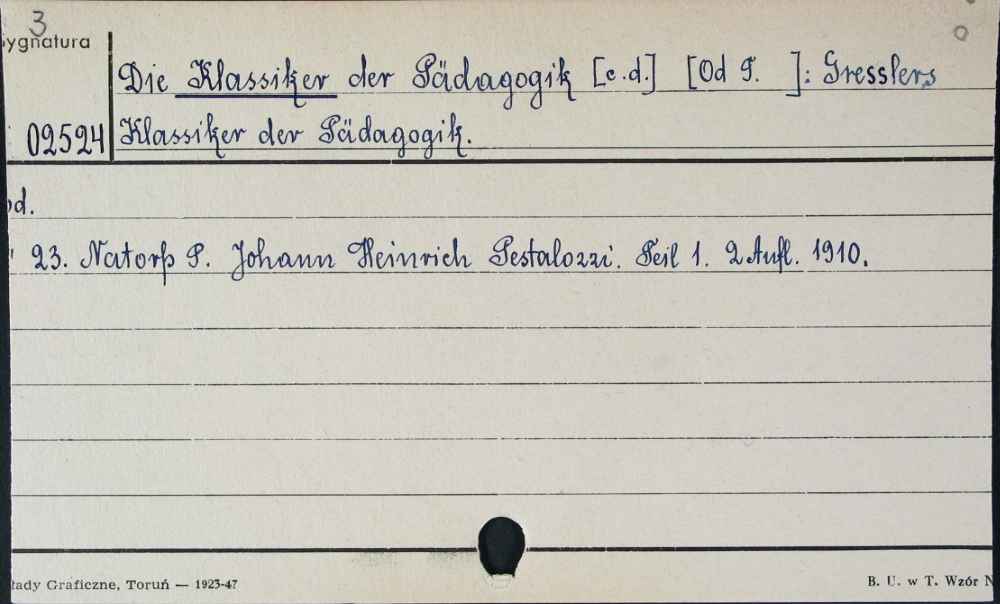 3
ygnatura
Die Klassiker der Pädagogik [c.d.] [Od T. ]: Gresslers
02524 Klassiker der Pädagogik.
od.
23. Natorp P. Johann Heinrich Pestalozzi. Teil 1. 2 Aufl. 1910.
łady Graficzne, Toruń — 1923-47
B. U. w T. Wzór N